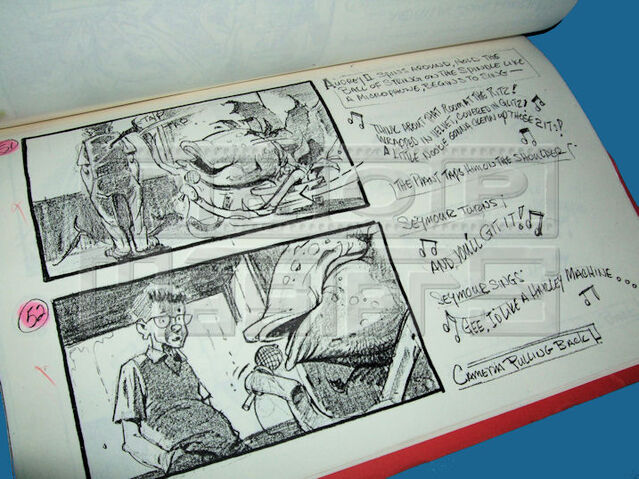 AUDREY II SPINS AROUND, AND THE
BALL OF STRING ON THE SPINDLE LIKE
A MICROPHONE, BEGINS TO SING —
THINK ABOUT THAT ROOM AT THE RITZ!
WRAPPED IN VELVET, COVERED IN GLITZ!
A LITTLE NOOKIE GONNA CLEAN UP THESE ZITS!
THE PLANT TAPS HIM ON THE SHOULDER
SEYMOUR TURNS!
AND YOU'LL GIT IT!
SEYMOUR SINGS
GEE, I'D LIKE A HARLEY MACHINE....
CAMERA PULLING BACK!
51
TAP
52
PROP